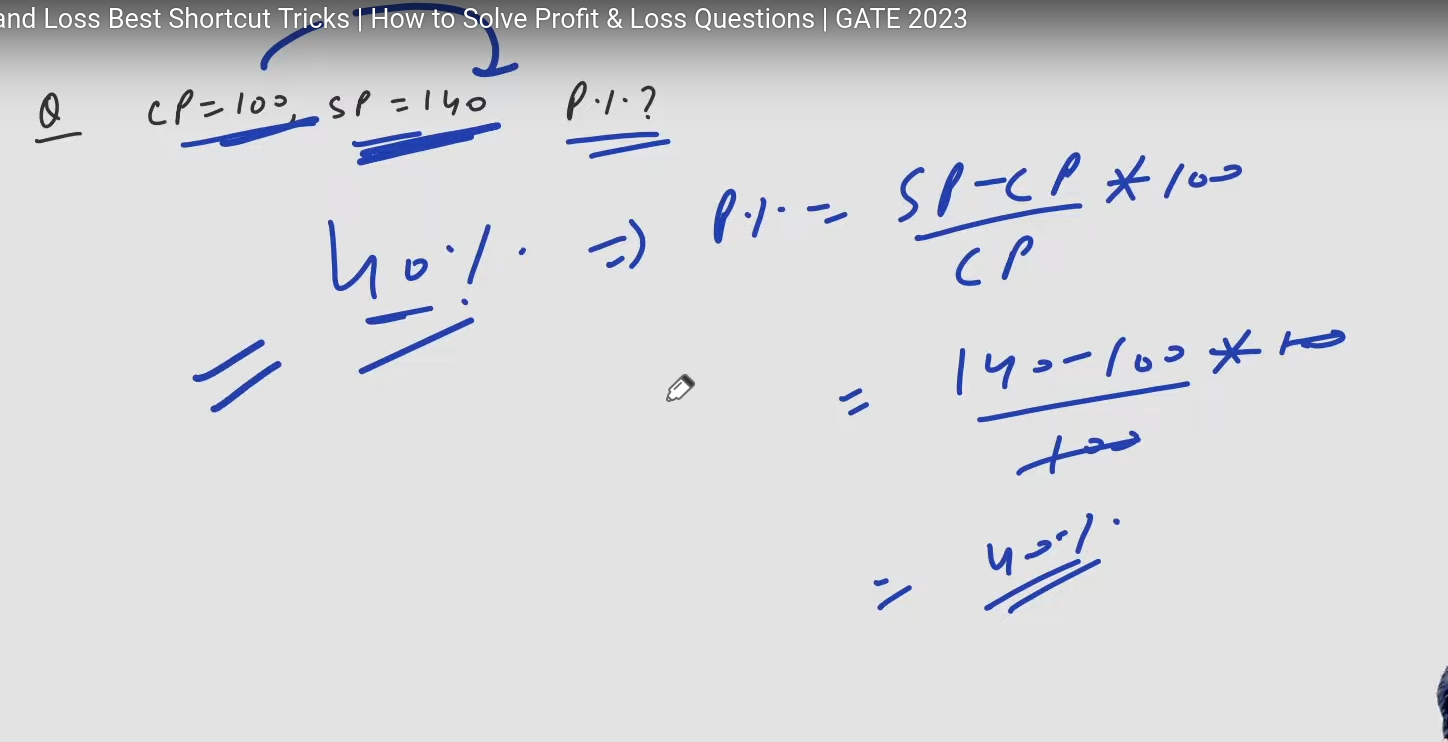 and Loss Best Shortcut Tricks | How to Solve Profit & Loss Questions | GATE 2023
Q CP=100, SP=140 P.%.?
40% => P% = SP-CP * 100
CP
= 140-100 * 100
100
= 40%